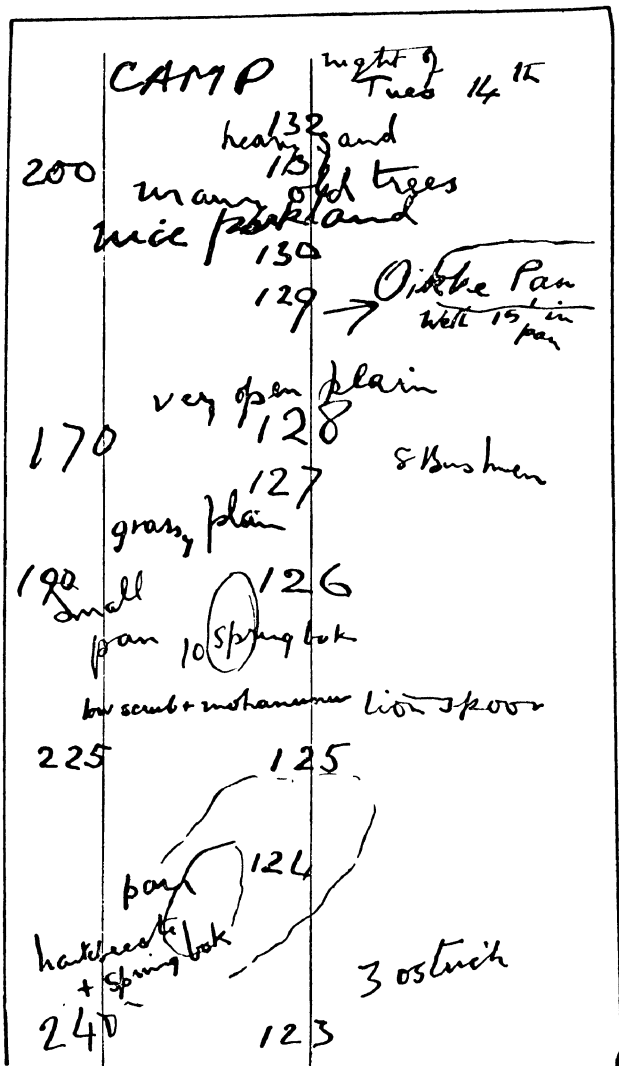 CAMP night of
Tues 14th
132
heavy sand
200 131
many old trees
nice parkland
130
129 → Oikhe Pan
Well 15' in
pan
very open plain
170 128
8 Bushmen
127
grassy plain
190 126
small
pan 10 Springbok
low scrub + mohanunu Lion spoor
225 125
124
pan
hartebeeste
+ Springbok
3 ostrich
240 123